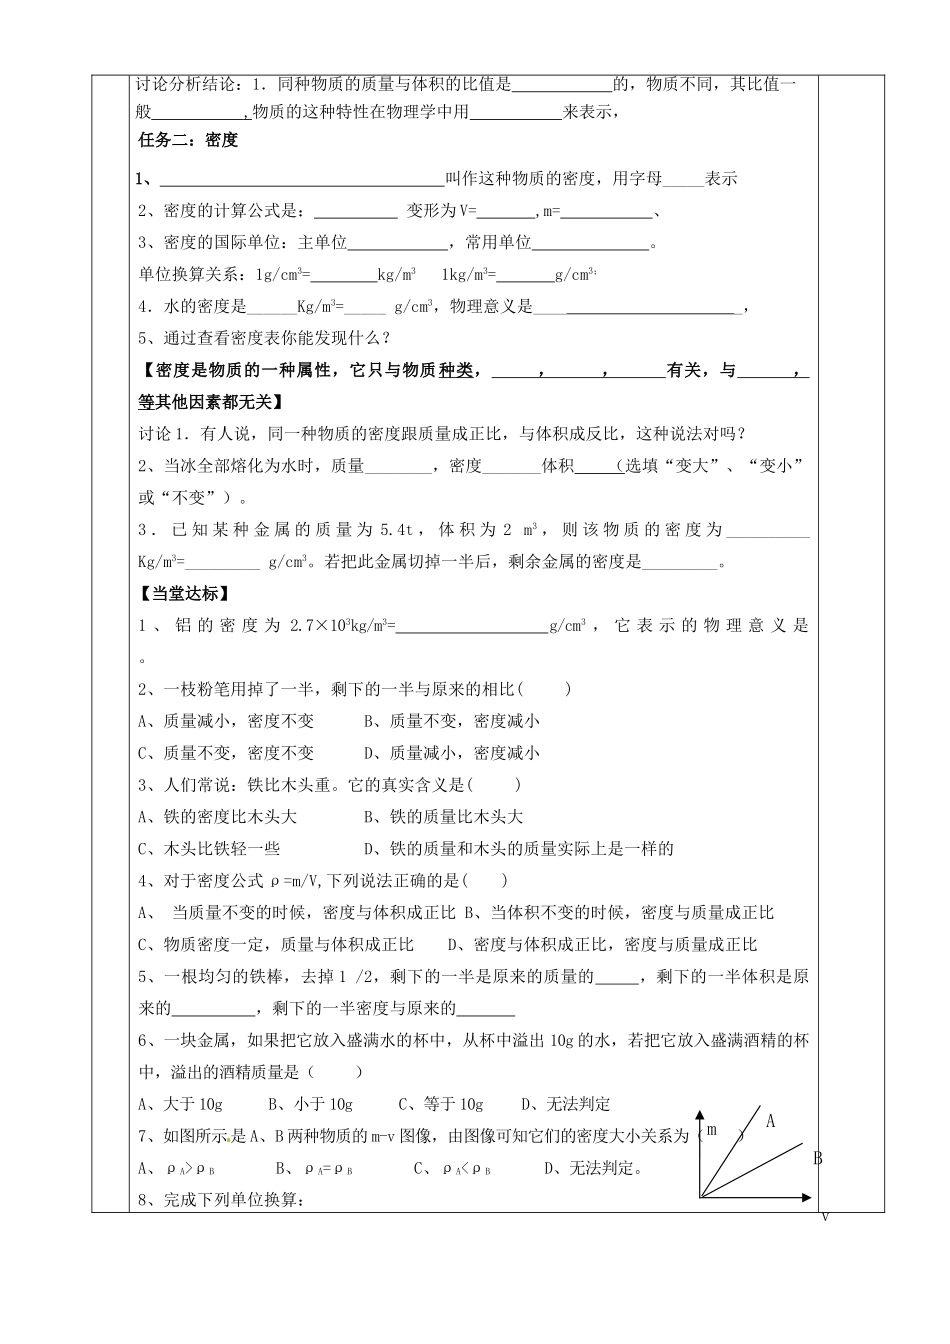 讨论分析结论：1．同种物质的质量与体积的比值是____________的，物质不同，其比值一
般___________,物质的这种特性在物理学中用___________来表示，
任务二：密度
1、__________________________________叫作这种物质的密度，用字母_____表示
2、密度的计算公式是：__________ 变形为V=_______,m=___________、
3、密度的国际单位：主单位____________，常用单位______________。
单位换算关系：1g/cm³=________kg/m³ 1kg/m³=_______g/cm³；
4．水的密度是______Kg/m³=_____ g/cm³，物理意义是_________________________，
5、通过查看密度表你能发现什么？
【密度是物质的一种属性，它只与物质种类，_____，______，______有关，与______，
等其他因素都无关】
讨论1．有人说，同一种物质的密度跟质量成正比，与体积成反比，这种说法对吗？
2、当冰全部熔化为水时，质量________，密度_______体积_____(选填“变大”、“变小”
或“不变”）。
3．已知某种金属的质量为5.4t，体积为2 m³，则该物质的密度为__________
Kg/m³=_________ g/cm³。若把此金属切掉一半后，剩余金属的密度是_________。
【当堂达标】
1、铝的密度为2.7×10³kg/m³=__________________g/cm³，它表示的物理意义是
。
2、一枝粉笔用掉了一半，剩下的一半与原来的相比( )
A、质量减小，密度不变 B、质量不变，密度减小
C、质量不变，密度不变 D、质量减小，密度减小
3、人们常说：铁比木头重。它的真实含义是( )
A、铁的密度比木头大 B、铁的质量比木头大
C、木头比铁轻一些 D、铁的质量和木头的质量实际上是一样的
4、对于密度公式ρ=m/V,下列说法正确的是( )
A、 当质量不变的时候，密度与体积成正比 B、当体积不变的时候，密度与质量成正比
C、物质密度一定，质量与体积成正比 D、密度与体积成正比，密度与质量成正比
5、一根均匀的铁棒，去掉1 /2，剩下的一半是原来的质量的_____，剩下的一半体积是原
来的__________，剩下的一半密度与原来的_______
6、一块金属，如果把它放入盛满水的杯中，从杯中溢出10g的水，若把它放入盛满酒精的杯
中，溢出的酒精质量是（ ）
A、大于10g B、小于10g C、等于10g D、无法判定
7、如图所示是A、B两种物质的m-v图像，由图像可知它们的密度大小关系为（ ）
A、ρA>ρB B、ρA=ρB C、ρA<ρB D、无法判定。
8、完成下列单位换算：
m
A
B
v